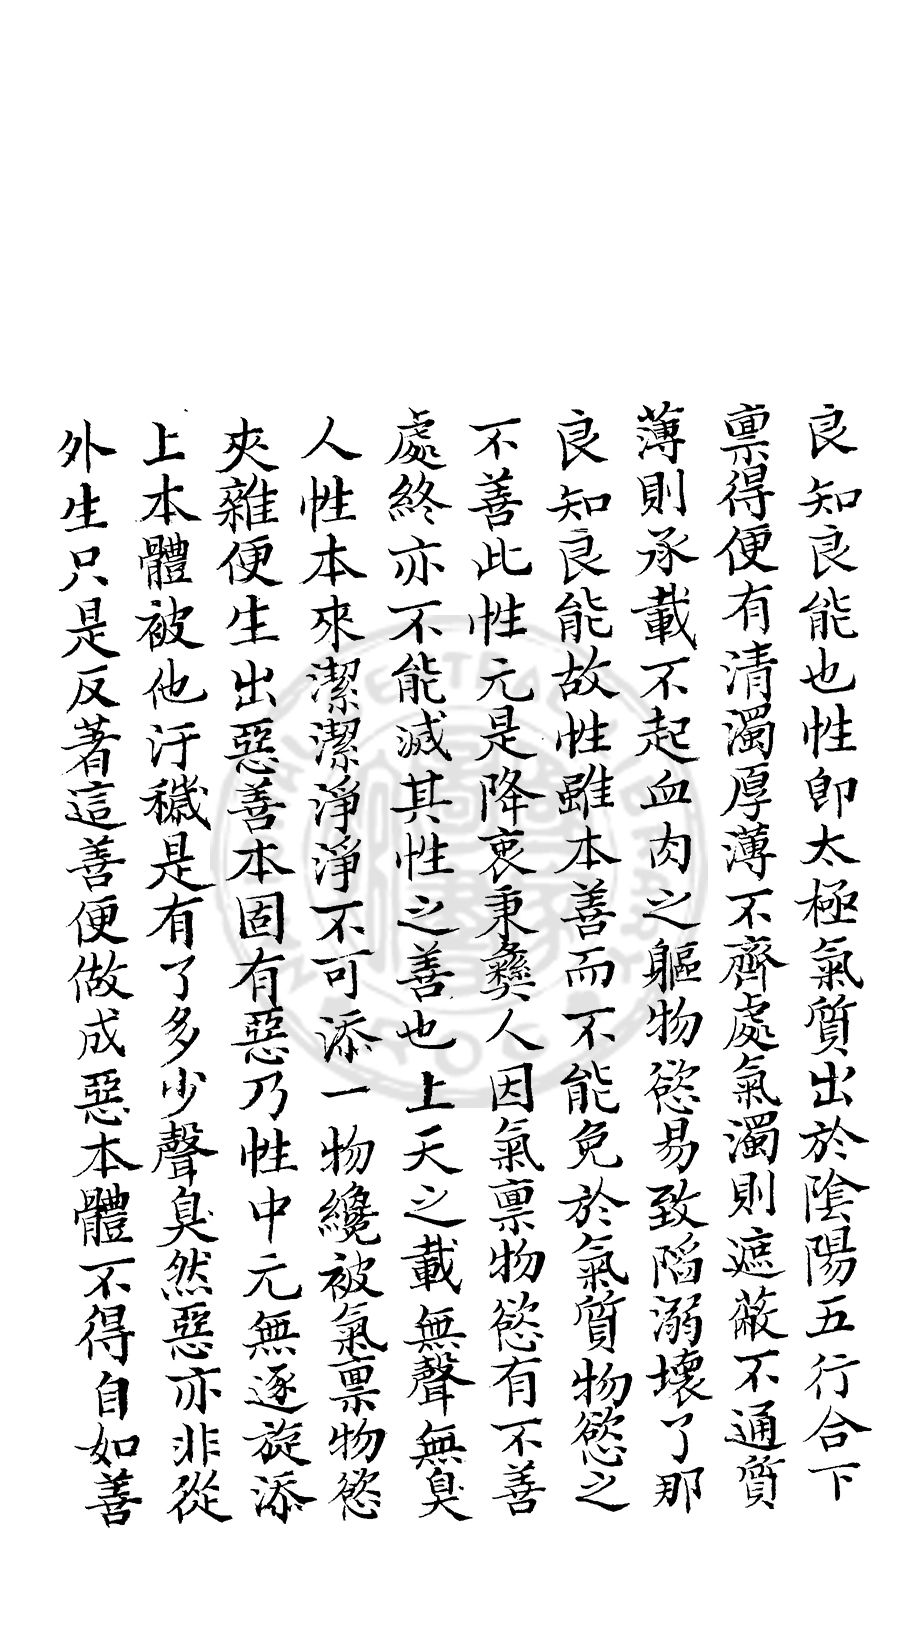 良知良能也性即太極氣質出於陰陽五行合下
禀得便有清濁厚薄不齊處氣濁則遮蔽不通質
薄則承載不起血肉之軀物慾易致陷溺壞了那
良知良能故性雖本善而不能免於氣質物慾之
不善此性元是降衷秉彝人因氣禀物慾有不善
處終亦不能滅其性之善也上天之載無聲無臭
人性本來潔潔淨淨不可添一物纔被氣禀物慾
夾雜便生出惡善本固有惡乃性中元無逐旋添
上本體被他汙穢是有了多少聲臭然惡亦非從
外生只是反著這善便做成惡本體不得自如善